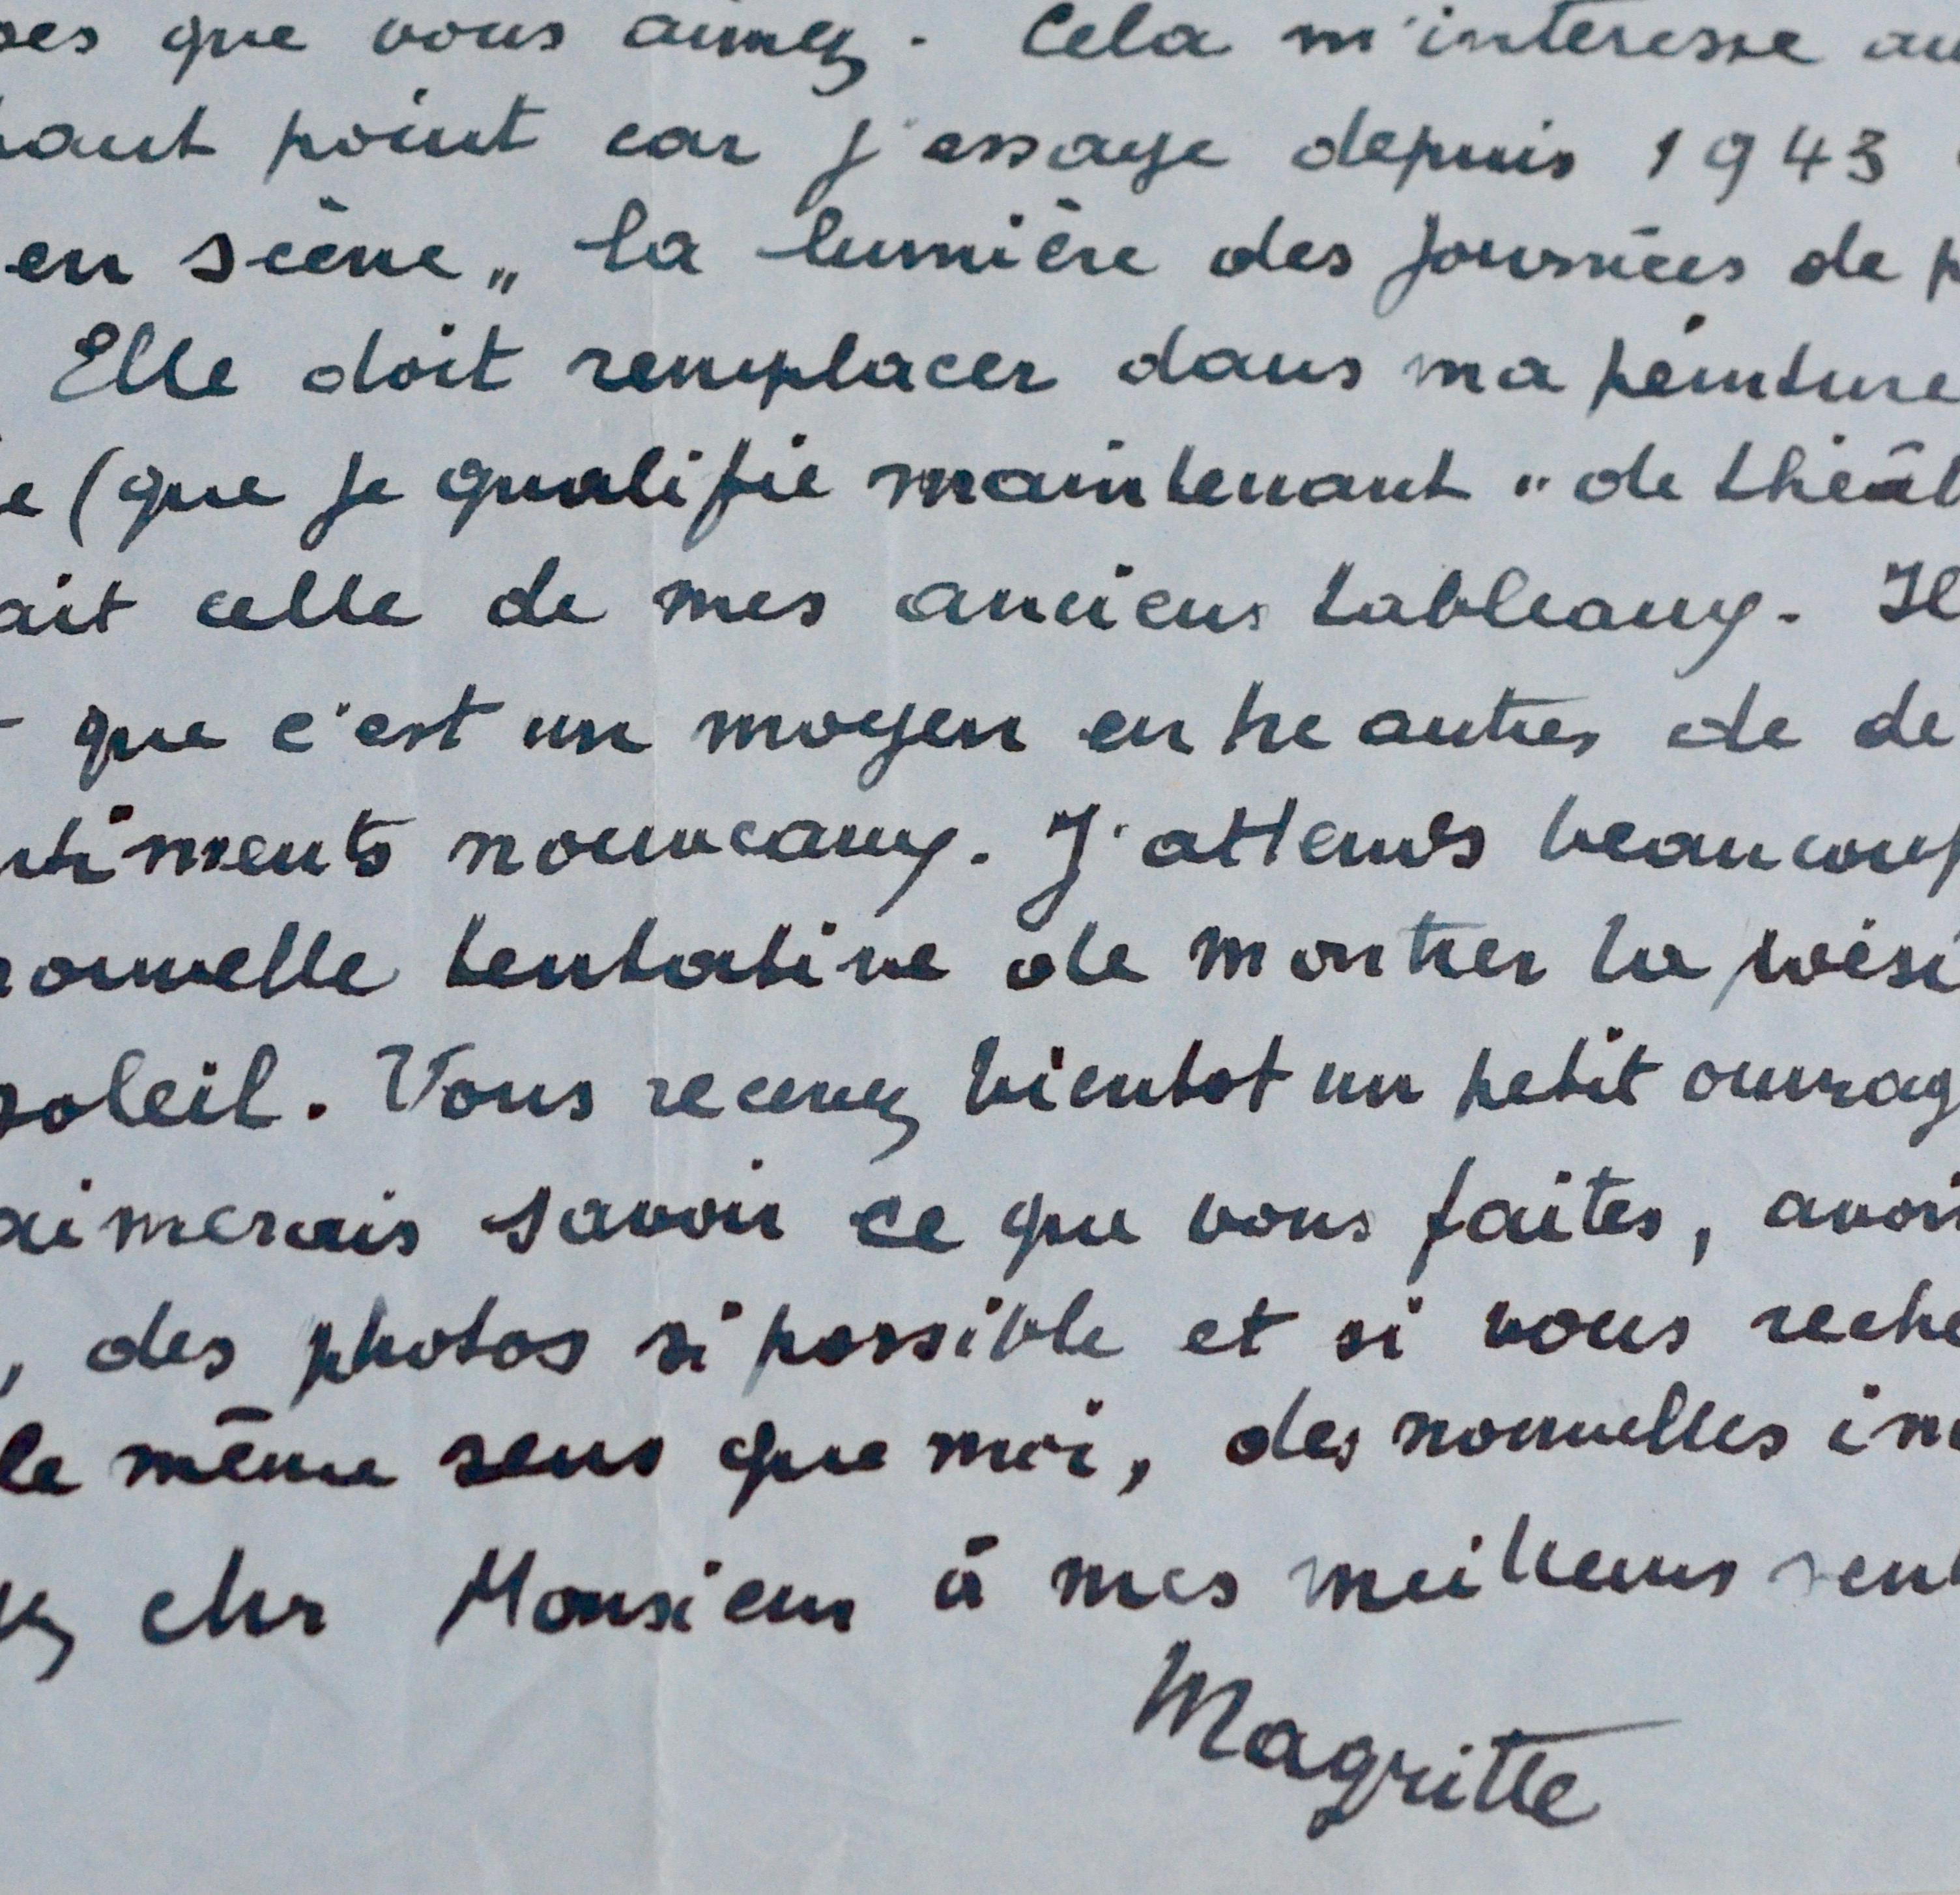 ses que vous aimez. Cela m'intéresse au
haut point car j'essaye depuis 1943
en scène„ la lumière des journées de p
Elle doit remplacer dans ma peinture
e (que je qualifie maintenant "de théât
ait celle de mes anciens tableaux. Il
que c'est un moyen entre autres de de
ntiments nouveaux. J'attends beaucoup
nouvelle tentative de montrer la poési
soleil. Vous recevez bientot un petit ouvrag
aimerais savoir ce que vous faites, avoir
, des photos si possible et si vous reche
le même sens que moi, des nouvelles im
ez cher Monsieur à mes meilleurs sent
Magritte